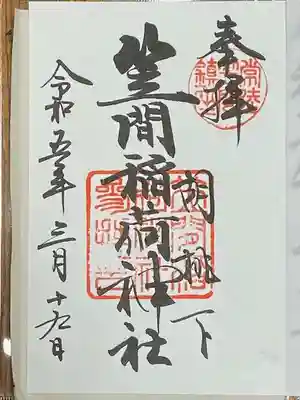 奉拝
胡桃下
笠間稲荷神社
令和五年三月十九日